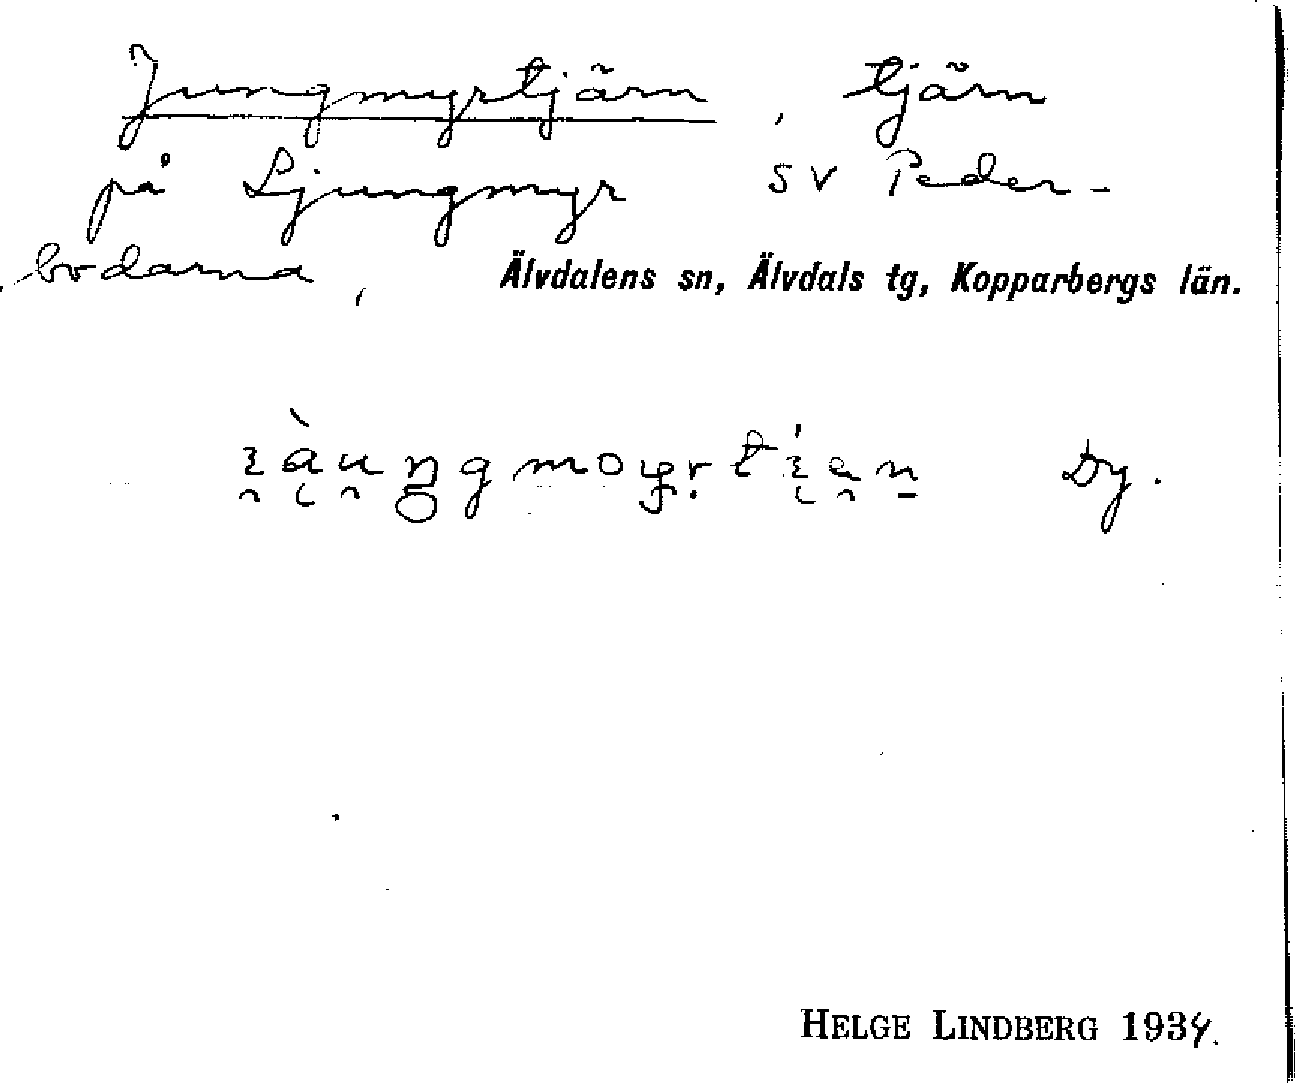 Jungmyrtjärn, tjärn
på Ljungmyr SV Peder-
bodarna, Älvdalens sn, Älvdals tg, Kopparbergs län.
Dy.
HELGE LINDBERG 1934.